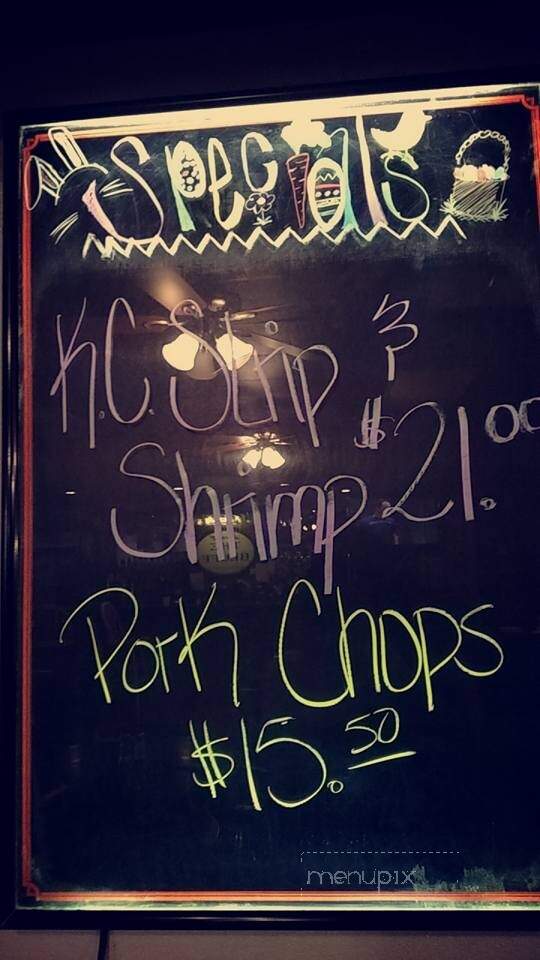 Specials
K.C. Strip &
Shrimp $21.00
Pork Chops
$15.50
menupix